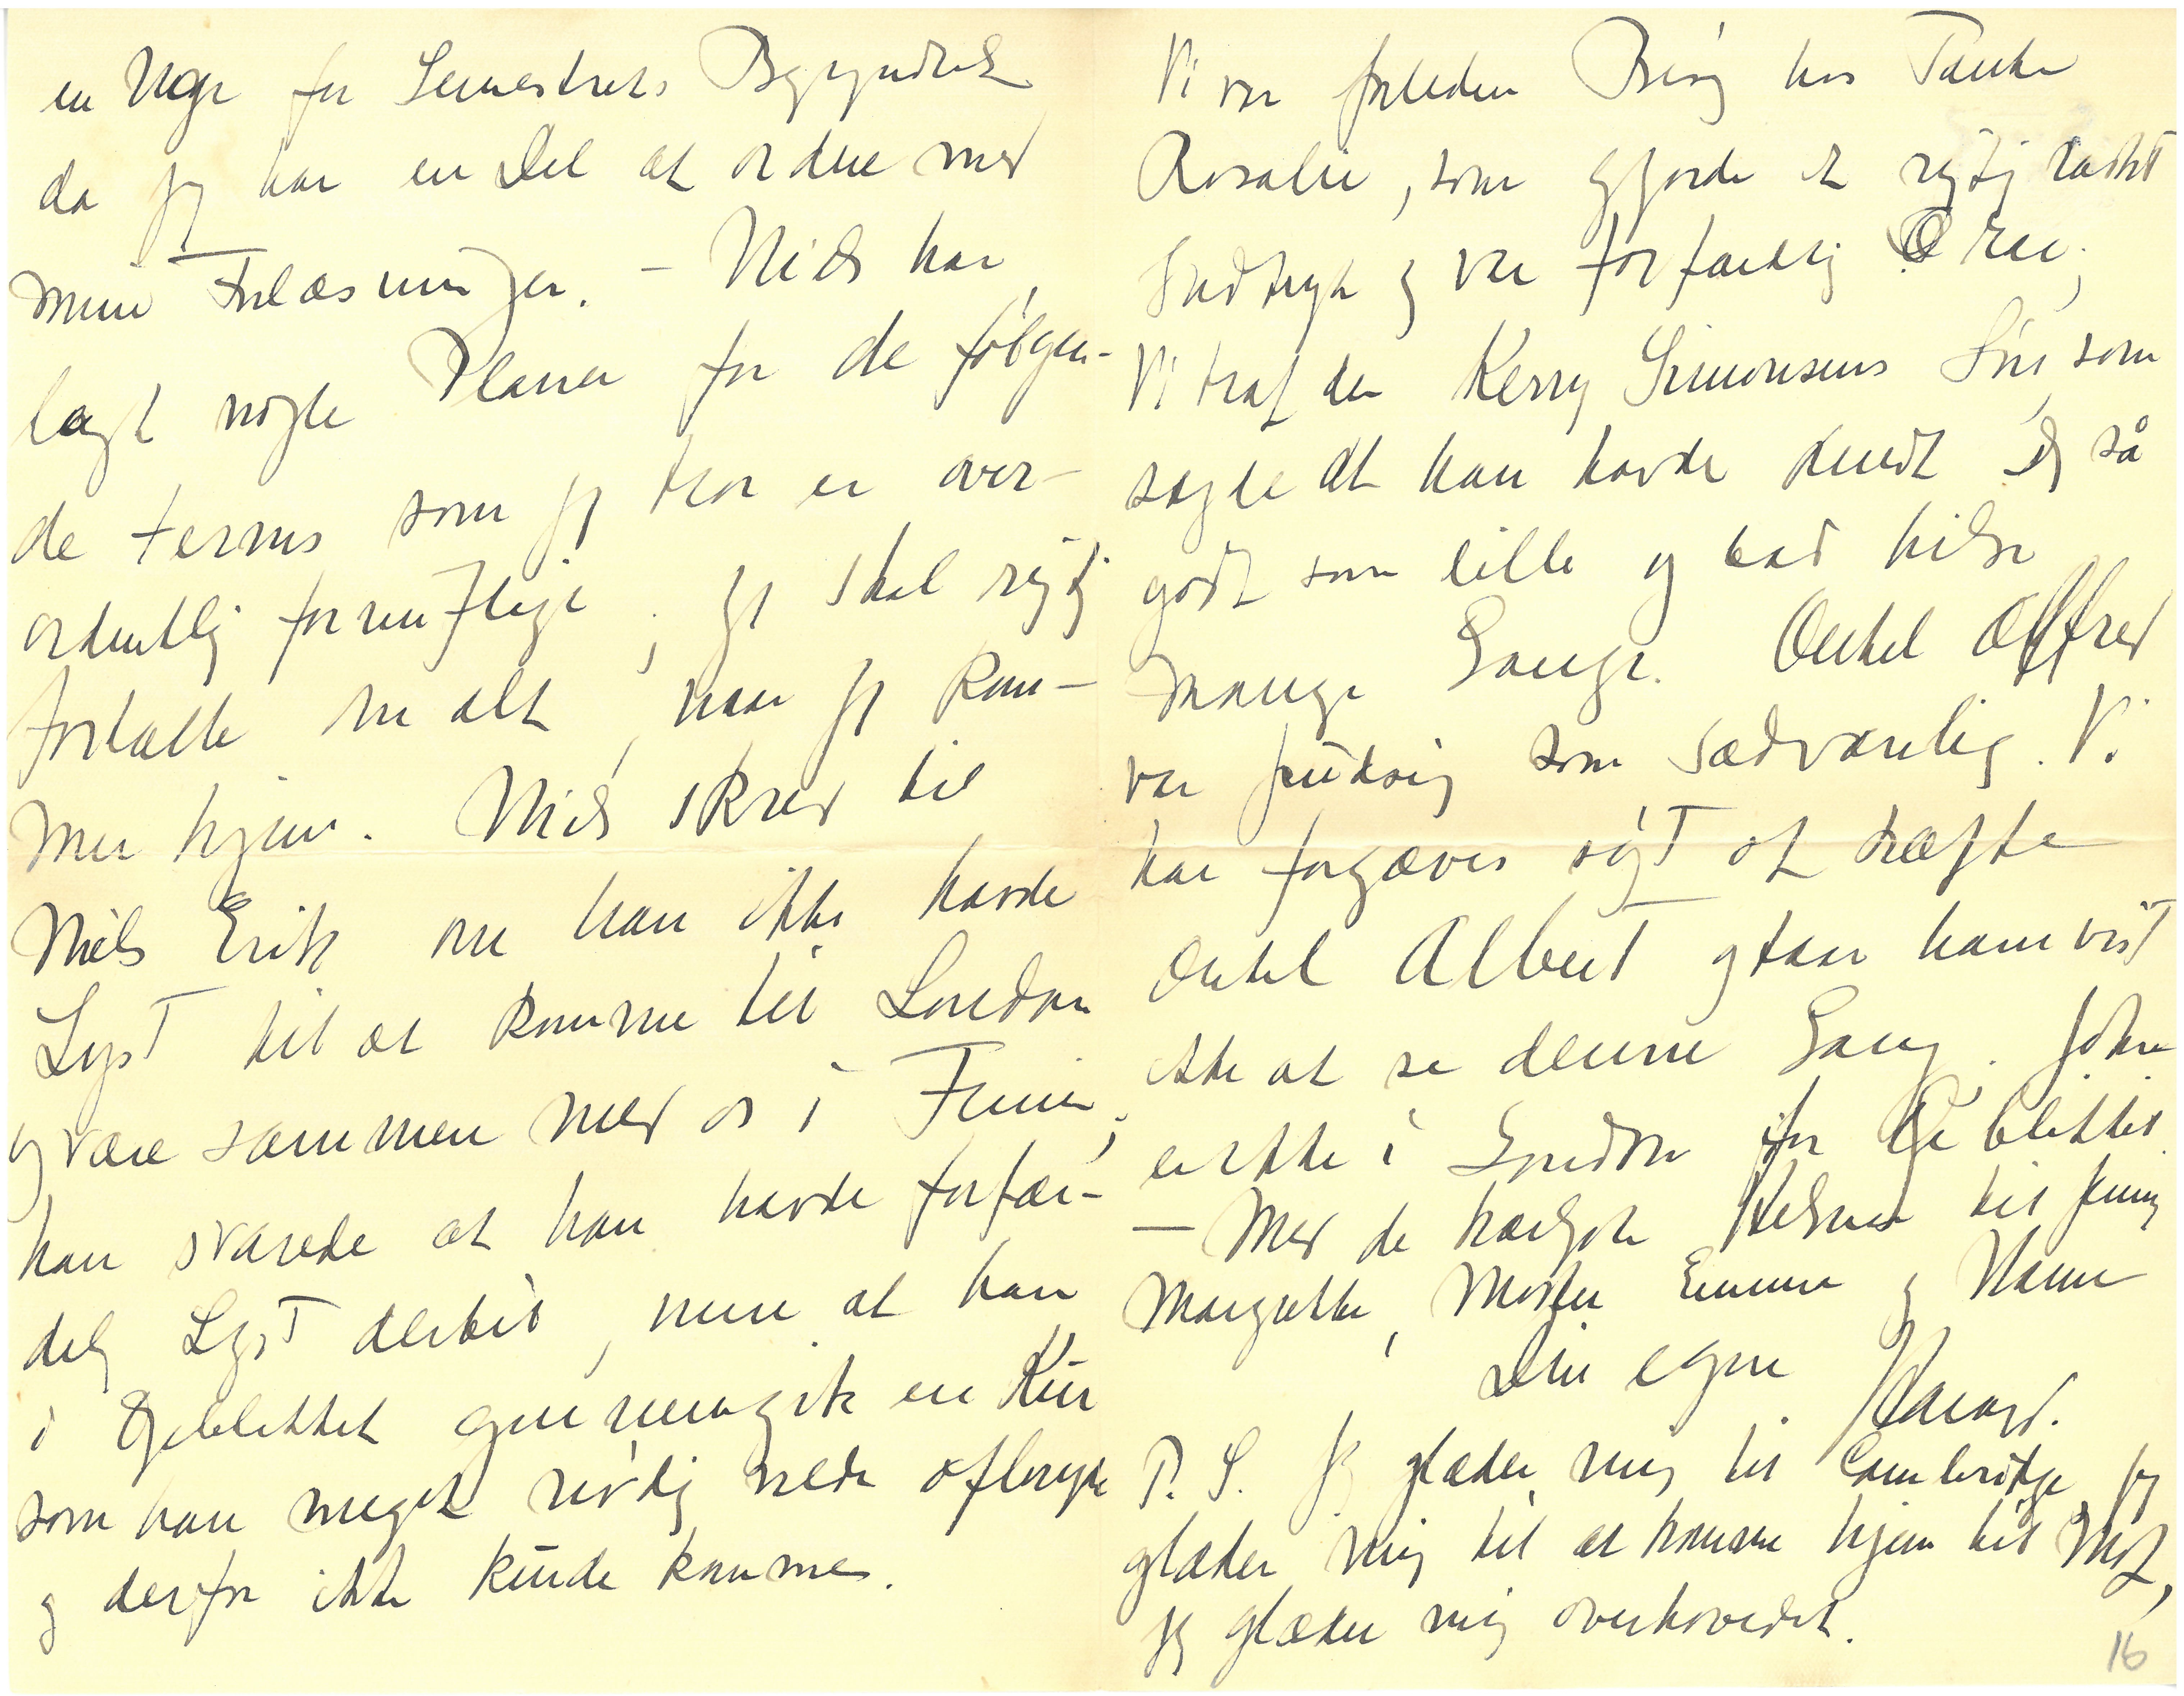 en Uge før Semestrets Begyndelse
da jeg har en Del at ordne med
mine Forelæsninger. – Niels har
lagt nogle Planer for de følgen-
de terms som jeg tror er over-
ordentlig fornuftige; jeg skal rigtig
fortælle om alt, naar jeg kom-
mer hjem. Niels skrev til
Niels Erik om han ikke havde
Lyst til at komme til London
og være sammen med os i Ferien;
han svarede at han havde forfær-
delig Lyst dertil, men at han
i Øjeblikket gennemgik en Kur
som han meget nødig vilde afbryde
og derfor ikke kunde komme.
Vi var forleden Besøg hos Tante
Rosalie, som gjorde et rigtig raskt
Indtryk og var forfærdelig rar;
Vi traf der Kerry Simonsens Søn, som
sagde at han havde kendt Dig så
godt som lille og bad hilse
mange Gange. Onkel Alfred
var pudsig som sædvanlig. Vi
har forgæves søgt at træffe
Onkel Albert og faar ham vist
ikke at se denne Gang. John
er ikke i London for Øjeblikket.
– Med de kærligste Hilsner til Jenny
Margrethe, Moster Emma og Hanne
Din egen
Harald.
P. S. Jeg glæder mig til Cambridge, jeg
glæder mig til at komme hjem til
jeg glæder mig overhovedet.
16